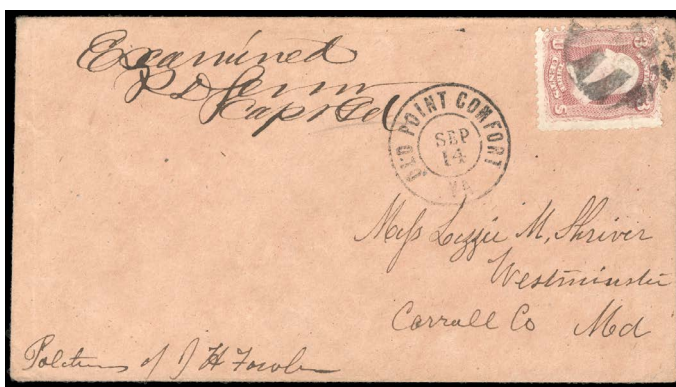 Examined
Capt
OLD POINT COMFORT
SEP
14
VA
Miss Lizzie M, Shriver
Westminster
Carroll Co Md
of J H Fowler